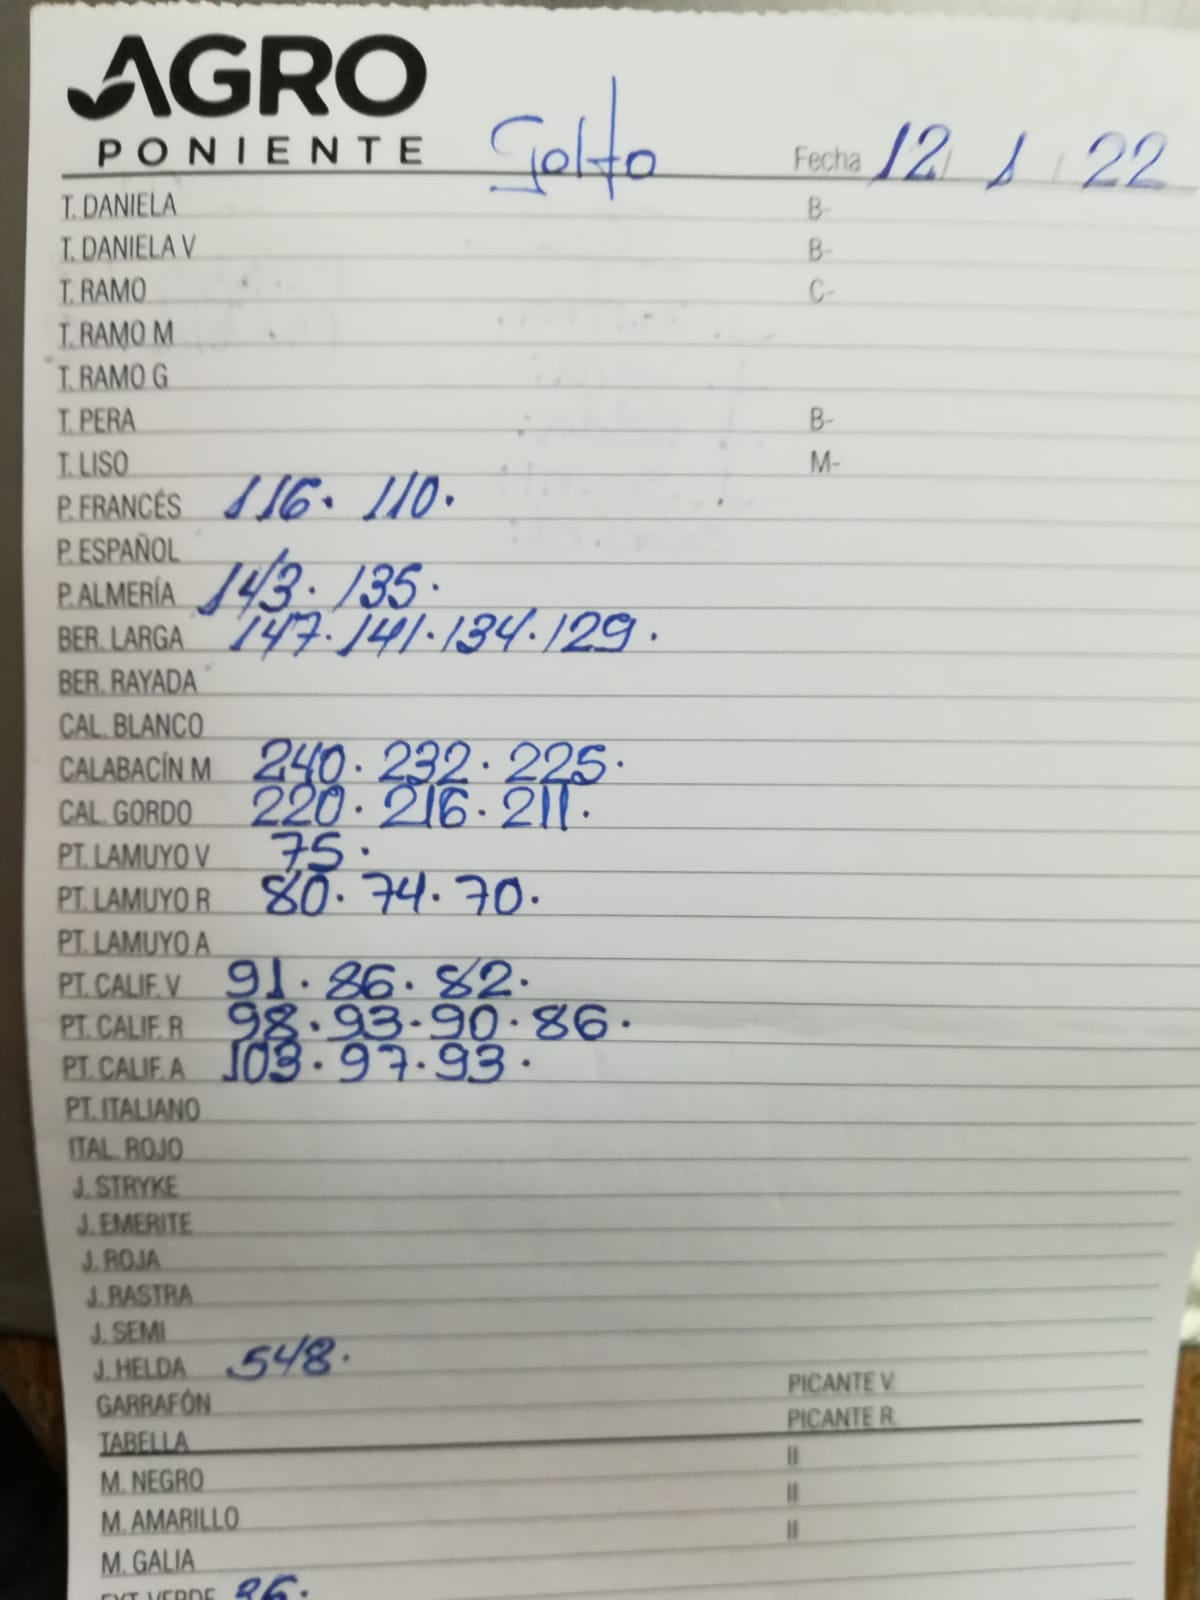 AGRO
PONIENTE
Golfo Fecha 12 / 1 / 22
T. DANIELA B-
T. DANIELA V B-
T. RAMO C-
T. RAMO M
T. RAMO G
T. PERA B-
T. LISO M-
P. FRANCÉS 116. 110.
P. ESPAÑOL
P. ALMERÍA 143. 135.
BER. LARGA 147. 141. 134. 129.
BER. RAYADA
CAL. BLANCO
CALABACÍN M 240. 232. 225.
CAL. GORDO 220. 216. 211.
PT. LAMUYO V 75.
PT. LAMUYO R 80. 74. 70.
PT. LAMUYO A
PT. CALIF. V 91. 86. 82.
PT. CALIF. R 98. 93. 90. 86.
PT. CALIF. A 103. 97. 93.
PT. ITALIANO
ITAL. ROJO
J. STRYKE
J. EMERITE
J. ROJA
J. RASTRA
J. SEMI
J. HELDA 548.
GARRAFÓN PICANTE V
TABELLA PICANTE R
M. NEGRO II
M. AMARILLO II
M. GALIA II
EXT. VERDE 36.